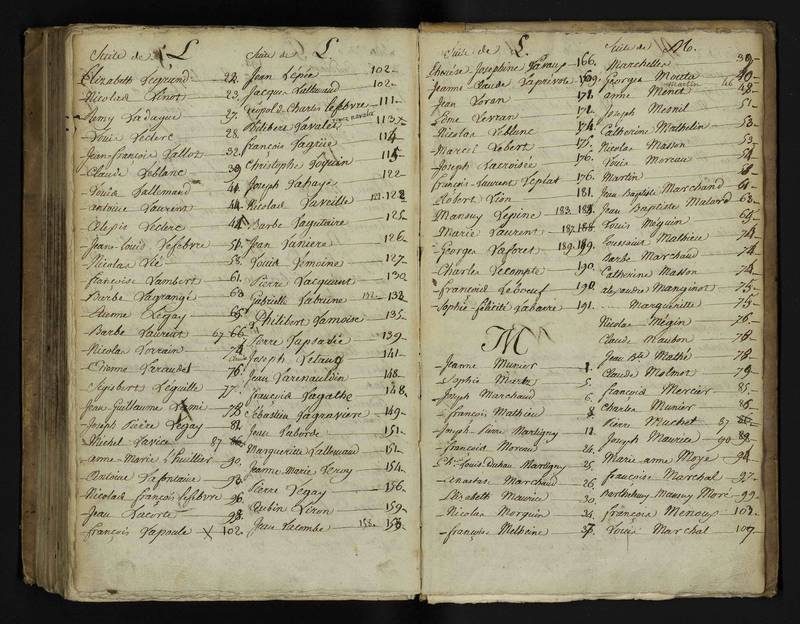 Suite de L
Elizabeth Legrand 22.
Nicolas Linot 23.
Remy Ladague 27.
Louis Leclerc 28.
Jean-françois Lallot 32.
Claude Leblanc 39
Louis Lallemand 41.
antoine Laurent 44.
Alexis Leclerc
Jean-Louis Lefebvre 51.
Nicolas 58.
françoise Lambert 61.
Barbe Lagrange 63
Leger 65
Barbe Laurent 67 66
Nicolas Lorrain
Etienne 76.
Sigisbert Leguille 77.
Jean Guillaume 78
Joseph Legay 81
Michel Lavice 87
anne-Marie L'huillier 90.
Antoine Lafontaine
Nicolas françois Lefebvre 96.
Jean Lacorte 98.
françois Lapaule X 102
Suite de L
Jean Lépée 102
Jacques Lallemand 102
Leopold-Charles Lefebvre 111
Philibert Lavalet 113
françois 114
Christophe Loquin 115
Joseph Lahaye 122
Nicolas Lareille 122
Barbe 125
Jean Laniere 126
Louis Lemoine 127
Pierre Jacquent 130
Gabrielle Labruine 132
Philibert Lamoise 135
Pierre 139
Joseph 141
Jean 148
françois Lagathe 148
Sébastien Lagraviere 149
Jean Laborde 151
Margueritte Lallemand 151
Jeanne Marie Leroy 154
Pierre Legay 156
Aubin Liron 159
Jean Lacombe 158
Suite de L.
Therese Josephine 166.
Jeanne Claude 169.
Jean Loran 171.
Léon 172.
Nicolas Leblanc 174.
Marcel Lebert 175.
Joseph Lacroisée 176.
françois-Laurent Leplat 176.
Robert Lion 181.
Mansuy Lépine 183.
Marie Laurent 187.
Georges Lafores 189.
Charles Lecompte 190.
françois Leboeuf 190.
Sophie-felicité Labaere 191.
M
Jeanne Munier 1.
Sophie 5.
Joseph Marchand 6.
françois Mathieu 8.
Joseph Pierre Martigny 12
françois Moreau 24.
Louis Martigny 25
Marchand 26.
Elisabeth Maurice 30.
Nicolas Morquin 34.
françois Melheine 37.
Suite de M.
Marchelles 39
Georges 40
anne Menot 48
Joseph Mesnil 51
Catherine Mathelin 53
Nicolas Masson 53
Louis Moreau 54
Martin
Jean Baptiste Marchand 61
Jean Baptiste Malard 63
Louis Méquin 65
Toussaint Mathieu 74
Barbe Marchand 74
Catherine Masson 74
Alexandre Manginot 75
Margueritte 75
Nicolas Mégin 76
Claude Maubon 78
Jean Bte Mathé 78
Claude Molmot 79
françois Mercier 85
Charles Munier 86
Pierre 87
Joseph Maurice 90
Marie anne Moyé 94
françoise Marchal 97
Barthelemy Mansuy Moré 99
françois Menoux 103
Louis Marchal 107